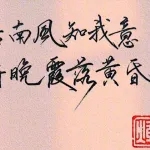 南風知我意
晚霞落黄昏